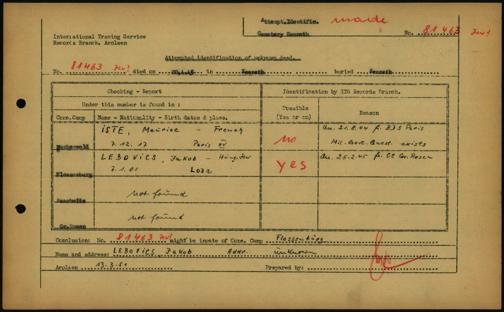 Attempt.Identific. made
Cemetery Nemmath No. 81463 Jew!
International Tracing Service
Records Branch, Arolsen
Attempted identification of unknown dead.
No. 81463 Jew! died on in buried
Checking - Report
Identification by ITS Records Branch.
Under this number is found in:
Possible (Yes or no)
Reason
Conc.Camp
Name - Nationality - Birth dates & place.
ISTE, Maurice - French
Buchenwald
7.12.17 Paris
no
21.8.44 Paris
exists
LEBOVICS, Jakob -
Flossenburg
7.1.01 Lodz
yes
25.2.45 CC Gr. Rosen
not found
Auschwitz
not found
Gr.Rosen
Conclusion: No. 81463 might be inmate of Conc. Camp Flossenbürg
Name and address: LEBOVICS Jakob Addr unknown
Arolsen 13.3.51 Prepared by: